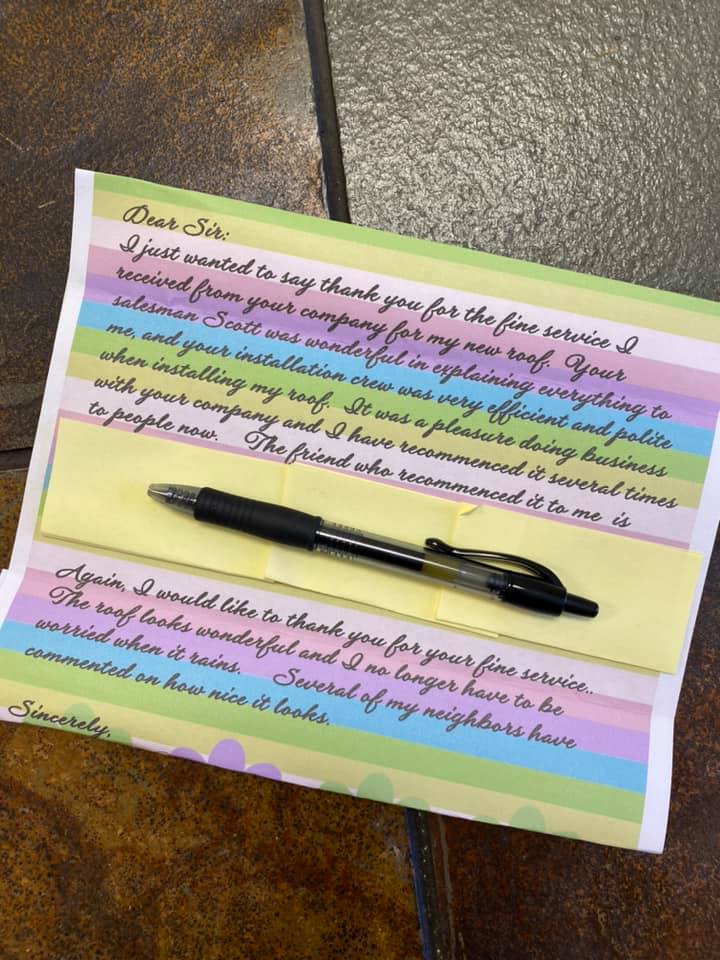 Dear Sir:
I just wanted to say thank you for the fine service I
received from your company for my new roof. Your
salesman Scott was wonderful in explaining everything to
me, and your installation crew was very efficient and polite
when installing my roof. It was a pleasure doing business
with your company and I have recommenced it several times
to people now. The friend who recommenced it to me is
Again, I would like to thank you for your fine service..
The roof looks wonderful and I no longer have to be
worried when it rains. Several of my neighbors have
commented on how nice it looks.
Sincerely,